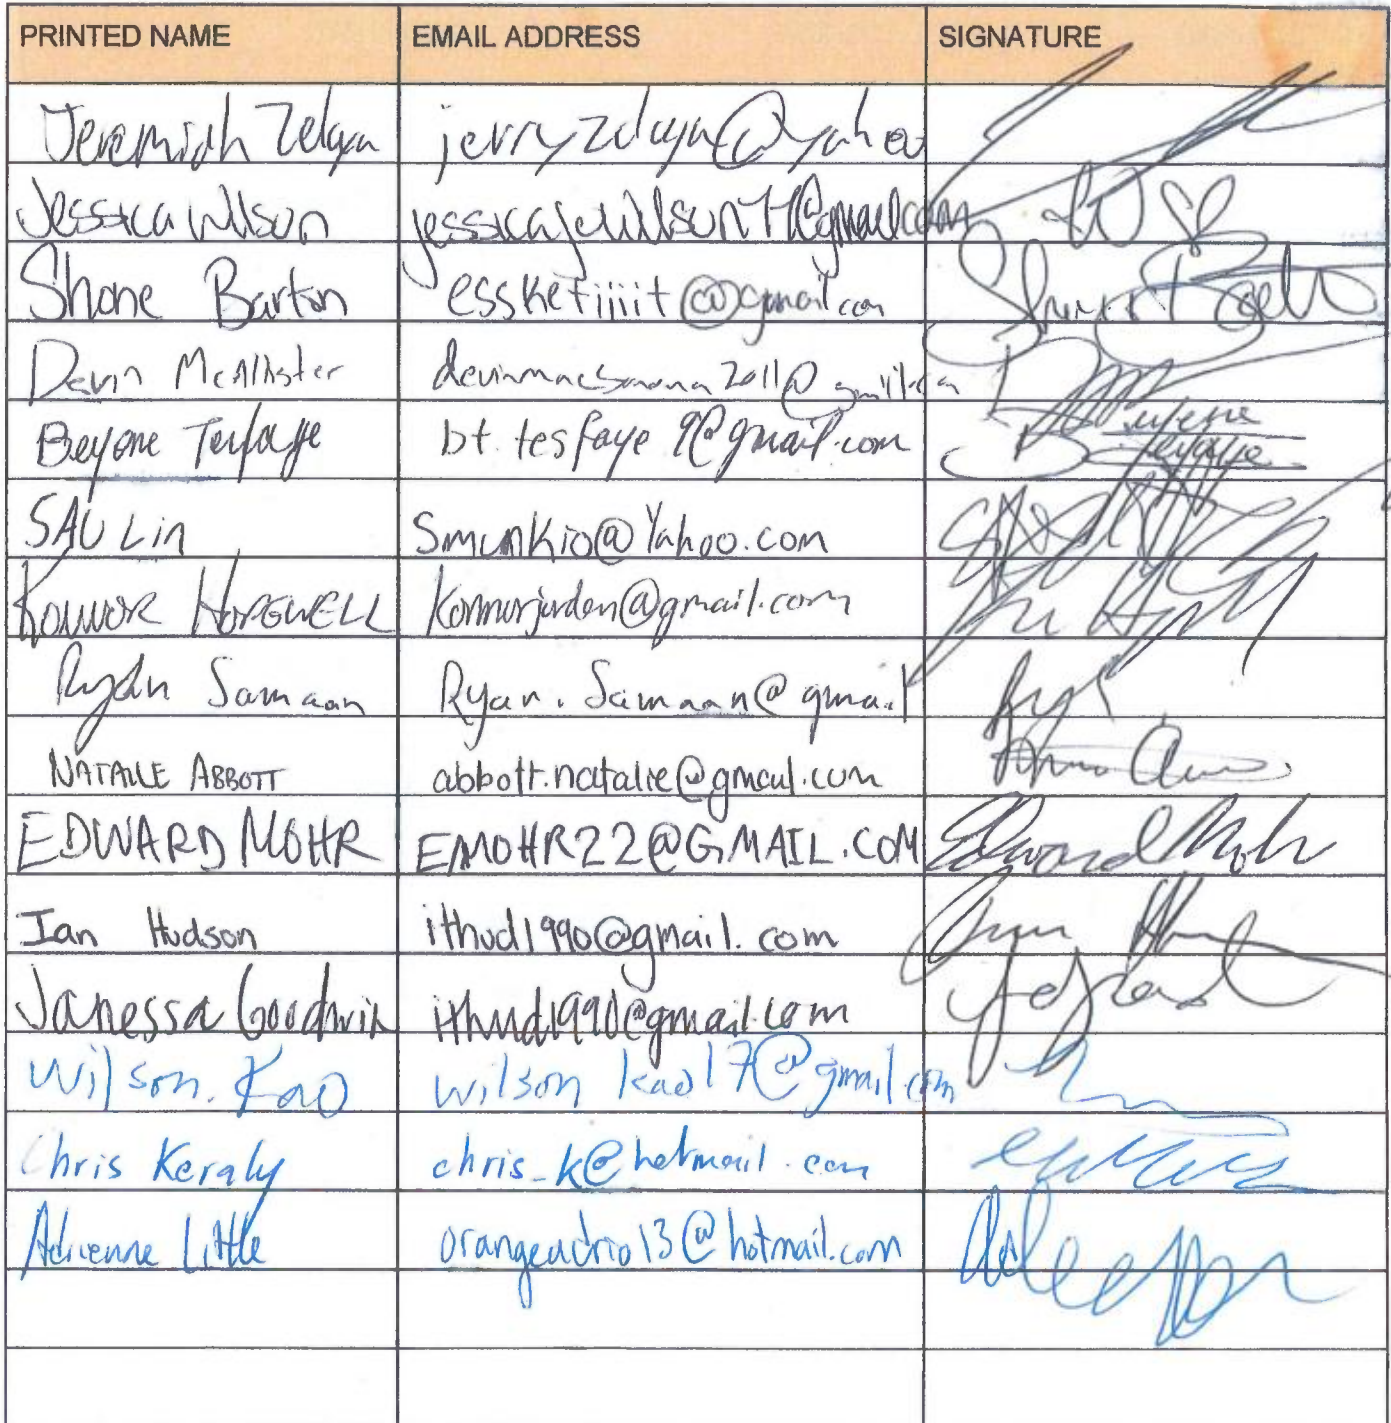 PRINTED NAME EMAIL ADDRESS SIGNATURE
Jeremiah Zelaya jerryzelaya@yahoo
Jessica Wilson
Shane Barton essketiiiit@gmail.com
Devin McAllister
Beyene Tesfaye bt.tesfaye9@gmail.com Beyene Tesfaye
SAU Lin Smunkio@Yahoo.com
KONNOR HOPEWELL konnorjorden@gmail.com
Ryan Samaan Ryan.Samaan@gmail
NATALIE ABBOTT abbott.natalie@gmail.com
EDWARD MOHR EMOHR22@GMAIL.COM Edward Mohr
Ian Hudson ithud1990@gmail.com
Janessa Goodwin ithud1990@gmail.com
Wilson. Kao wilsonkao17@gmail.com
Chris Keraly chris_k@hotmail.com
Adrienne Little orangeadrio13@hotmail.com